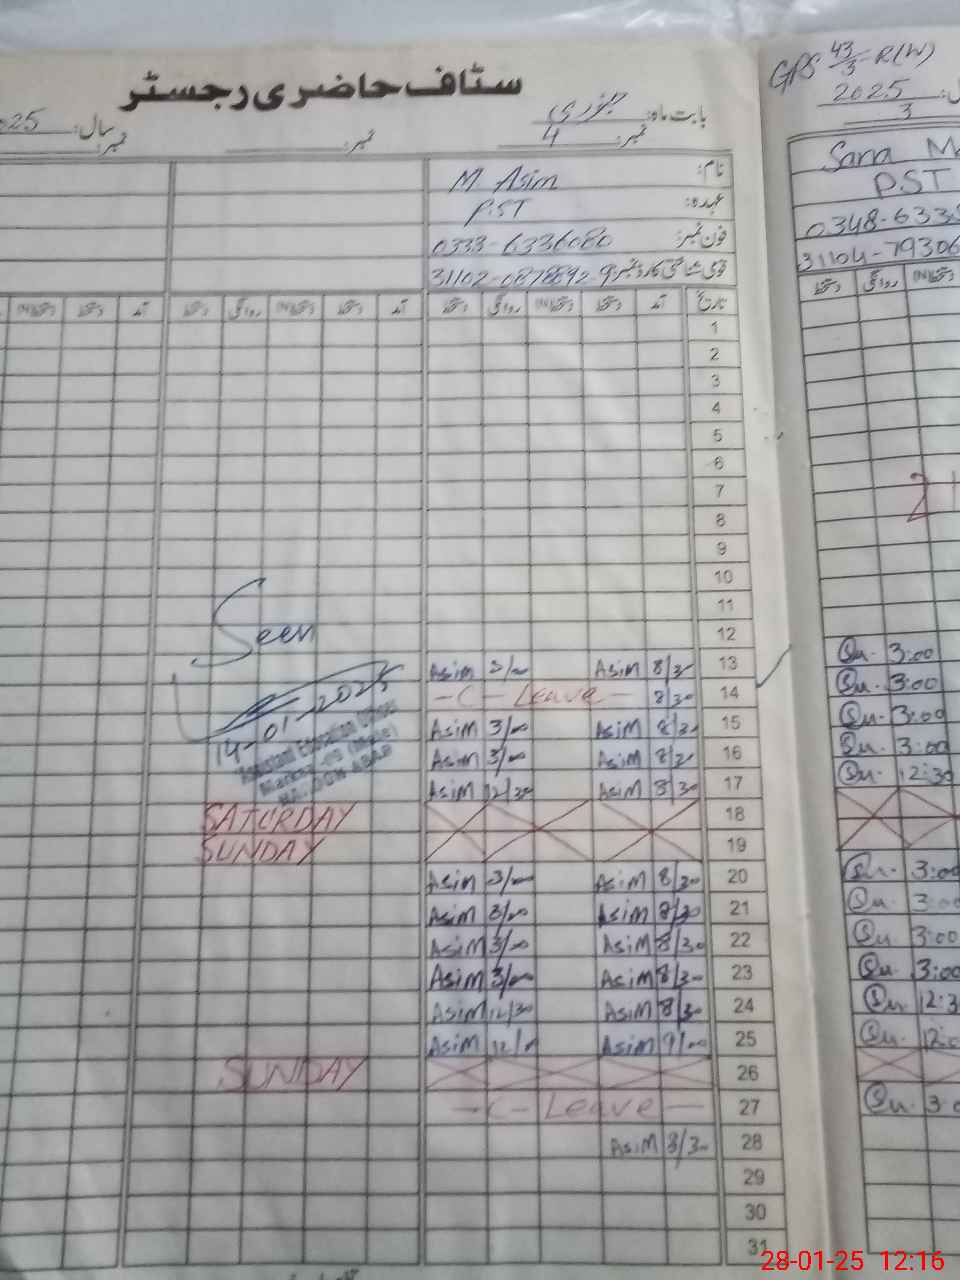 سٹاف حاضری رجسٹر
بابت ماہ: جنوری
نمبر: 4
نمبر:
سال: 025
نمبر:
GPS 43/3-R(W)
2025
3
نام: M Asim
عہدہ: P.ST
فون نمبر: 0333-6336080
قومی شناختی کارڈ نمبر: 31102-0878892-9
Sana M
P.ST
0348-6335
31104-79306
تاریخ آمد دستخط دستخط(IN) روانگی دستخط آمد دستخط دستخط(IN) روانگی دستخط آمد دستخط دستخط(IN)
دستخط(IN) روانگی دستخط
1
2
3
4
5
6
7
8
9
10
11
12
Seen
14-01-2025
Assistant Education Officer
Markaz (Male)
HAROON ABAD
13 8/30 Asim 3/00 Asim
14 8/30 -C-Leave-
15 8/30 Asim 3/00 Asim
16 8/30 Asim 3/00 Asim
17 8/30 Asim 12/30 Asim
18 SATURDAY
19 SUNDAY
20 8/30 Asim 3/00 Asim
21 8/30 Asim 3/00 Asim
22 8/30 Asim 3/00 Asim
23 8/30 Asim 3/00 Asim
24 8/30 Asim 12/30 Asim
25 9/00 Asim 12/ Asim
26 SUNDAY
27 -C-Leave-
28 8/30 Asim
29
30
31
3:00
3:00
3:00
3:00
12:30
3:00
3:00
3:00
3:00
12:3
12:0
3:0
28-01-25 12:16